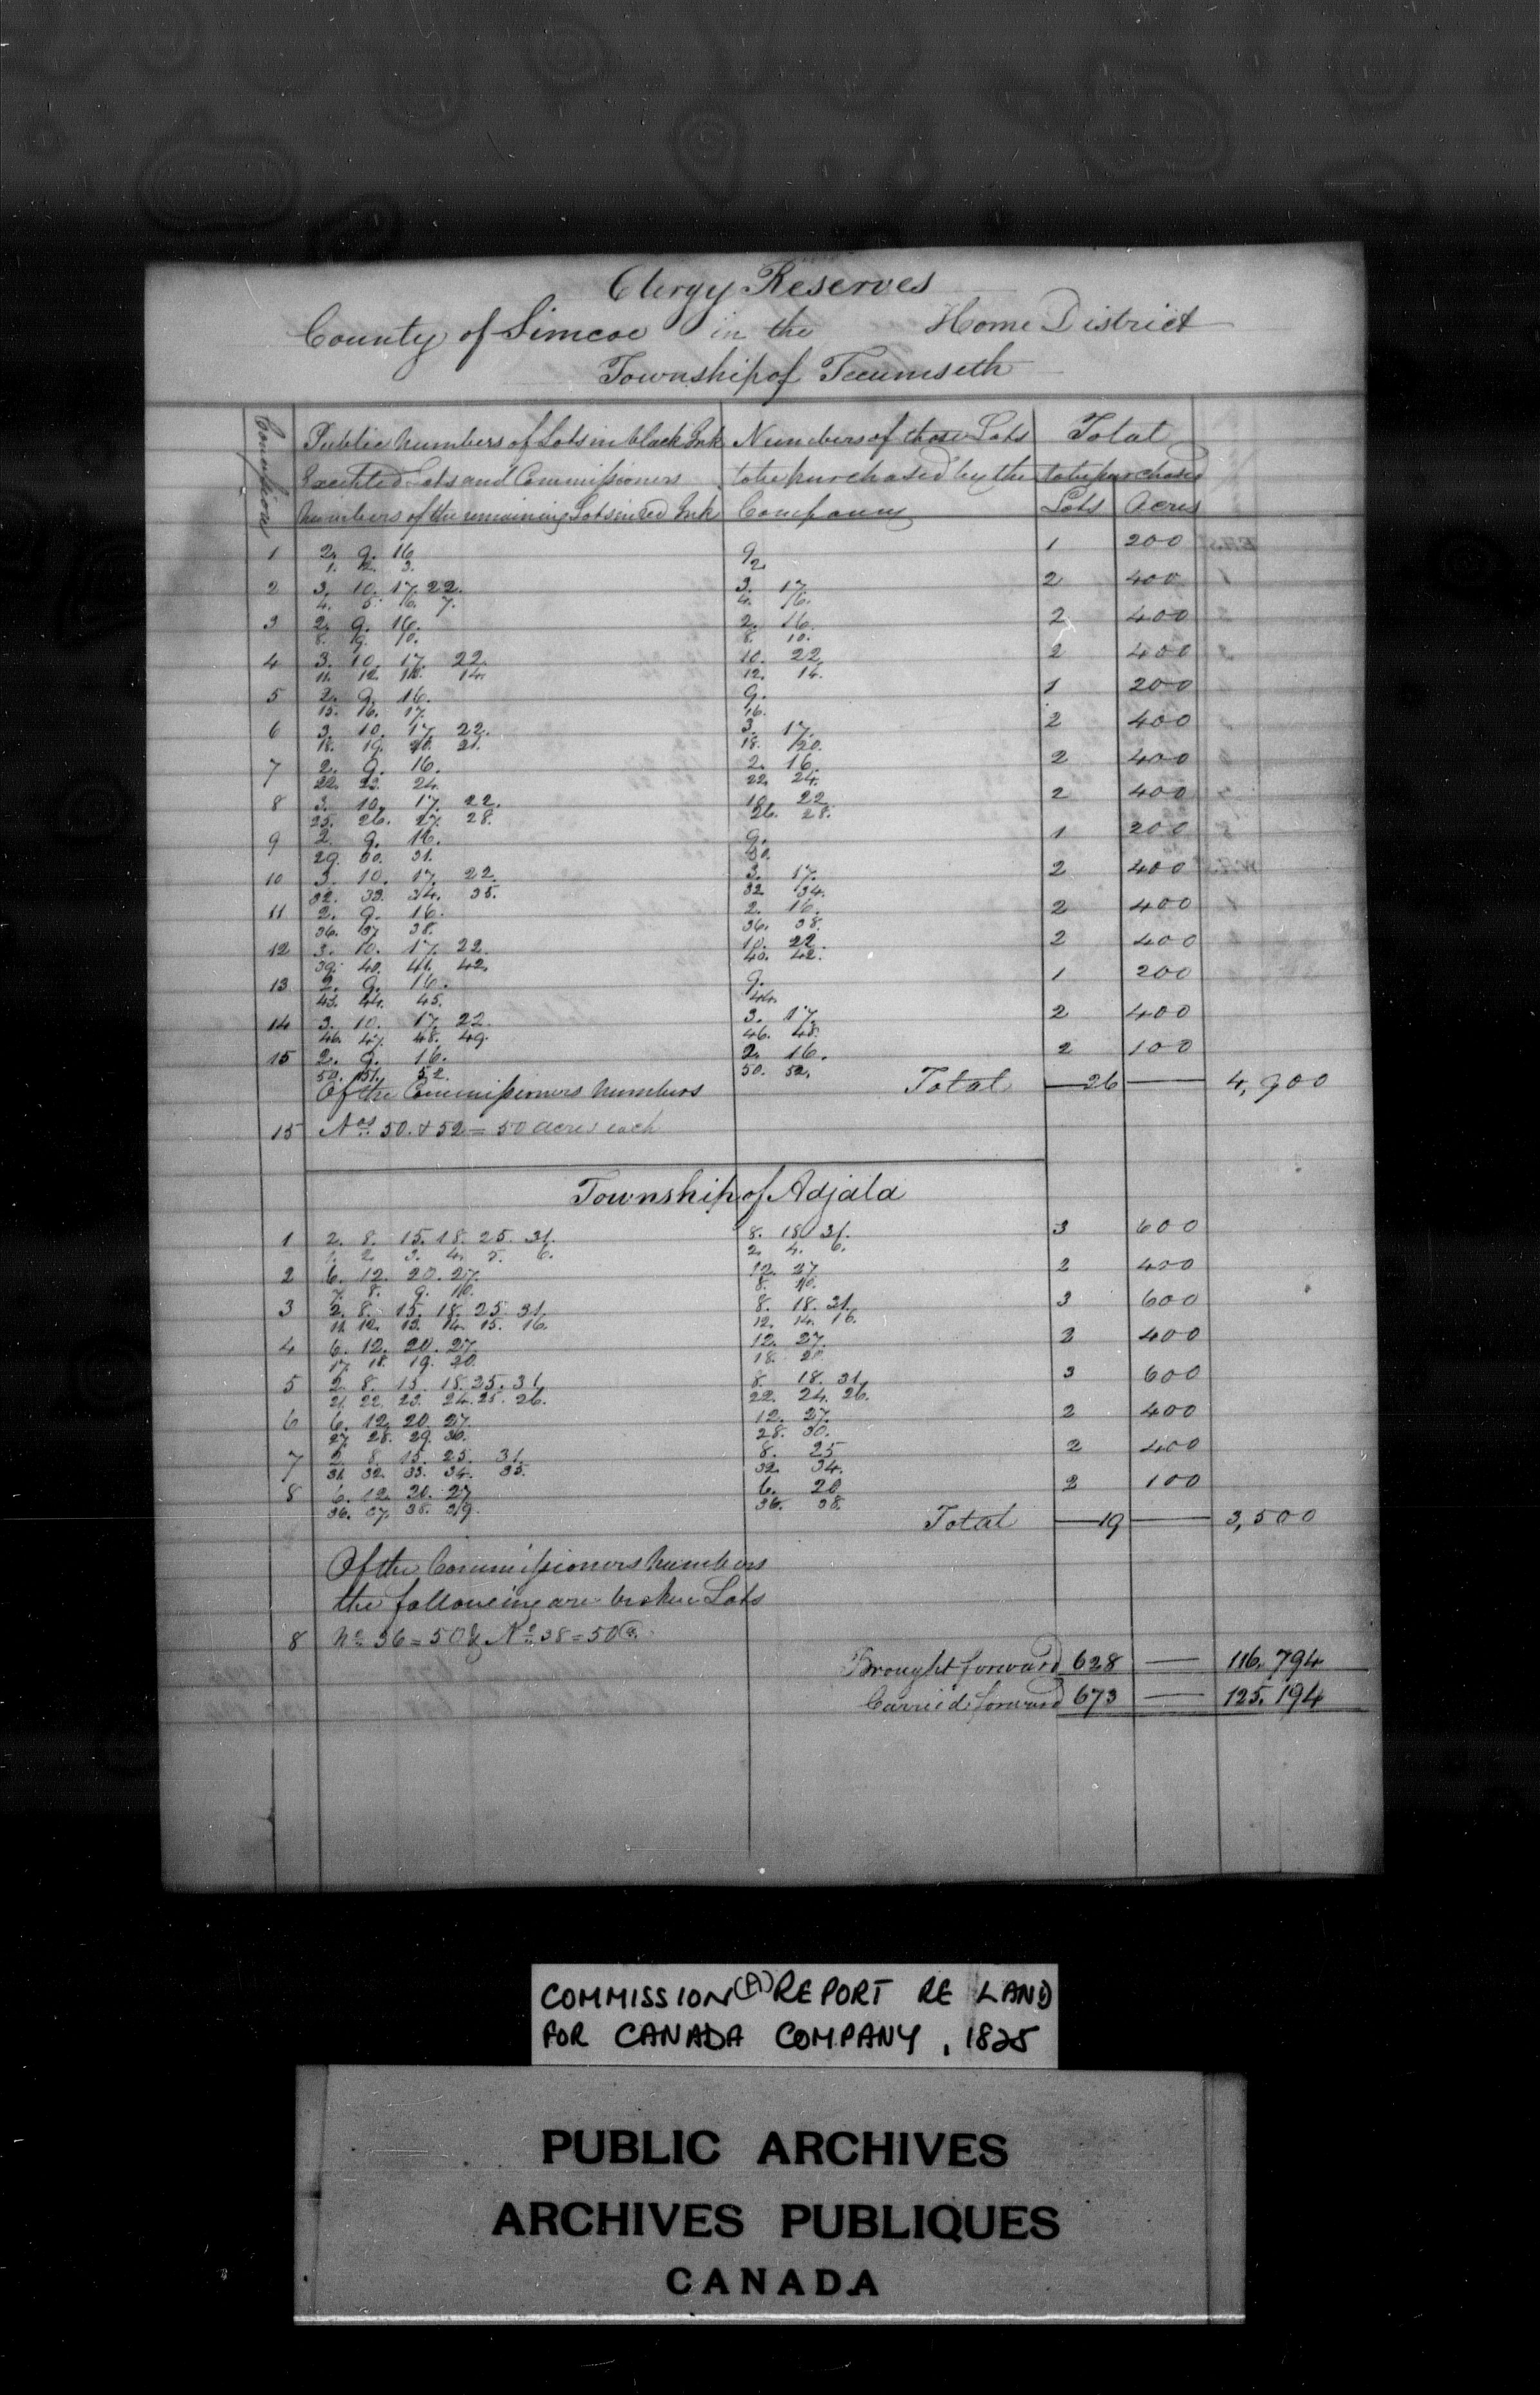 Clergy Reserves
County of Simcoe in the Home District
Township of Tecumseth
Concession
Public Numbers of Lots in black Ink Numbers of those Lots Total
Excepted Lots and Commissioners to be purchased by the to be purchased
Numbers of the remaining Lots in red Ink Company Lots Acres
1 2. 9. 16 9. 1 200
1. 2. 3. 2.
2 3. 10. 17. 22. 3. 17 2 400
4. 5. 6. 7. 4. 6.
3 2. 9. 16. 2. 16. 2 400
8. 9. 10. 8. 10.
4 3. 10. 17. 22. 10. 22. 2 400
11. 12. 13. 14. 12. 14.
5 2. 9. 16. 9. 1 200
15. 16. 17. 16.
6 3. 10. 17 22. 3. 17. 2 400
18. 19. 20. 21. 18. 20.
7 2. 9. 16. 2. 16. 2 400
22. 23. 24. 22. 24.
8 3. 10. 17. 22. 10. 22. 2 400
25. 26. 27. 28. 26. 28.
9 2. 9. 16. 9. 1 200
29. 30. 31. 30.
10 3. 10. 17. 22. 3. 17. 2 400
32. 33. 34. 35. 32 34.
11 2. 9. 16. 2. 16. 2 400
36. 37 38. 36. 38.
12 3. 10. 17. 22. 10. 22. 2 400
39. 40. 41. 42. 40. 42.
13 2. 9. 16. 9. 1 200
43. 44. 45. 44.
14 3. 10. 17. 22. 3. 17. 2 400
46. 47. 48. 49. 46. 48.
15 2. 9. 16. 2. 16. 2 100
50. 51. 52. 50. 52.
Of the Commissioners Numbers Total 26 4,900
15 Nos. 50. & 52 = 50 acres each
Township of Adjala
1 2. 8. 15. 18. 25. 31. 8. 18. 31. 3 600
1. 2. 3. 4. 5. 6. 2. 4. 6.
2 6. 12. 20. 27. 12. 27 2 400
7. 8. 9. 10. 8. 10.
3 2. 8. 15. 18. 25. 31. 8. 18. 31. 3 600
11. 12. 13. 14. 15. 16. 12. 14. 16.
4 6. 12. 20. 27. 12. 27. 2 400
17. 18. 19. 20. 18. 20
5 2. 8. 15. 18. 25. 31. 8. 18. 31. 3 600
21. 22. 23. 24. 25. 26. 22. 24. 26.
6 6. 12. 20. 27. 12. 27. 2 400
27. 28. 29. 30. 28. 30.
7 2. 8. 15. 25. 31. 8. 25 2 400
31. 32. 33. 34. 35. 32. 34.
8 6. 12. 20. 27 6. 20 2 100
36. 37. 38. 39. 36. 38.
Total 19 3,500
Of the Commissioners Numbers
the following are broken Lots
8 No. 36 = 50 & No. 38 = 50 a.
Brought forward 628 116,794
Carried forward 673 125,194
COMMISSION(A) REPORT RE LAND
FOR CANADA COMPANY, 1825
PUBLIC ARCHIVES
ARCHIVES PUBLIQUES
CANADA